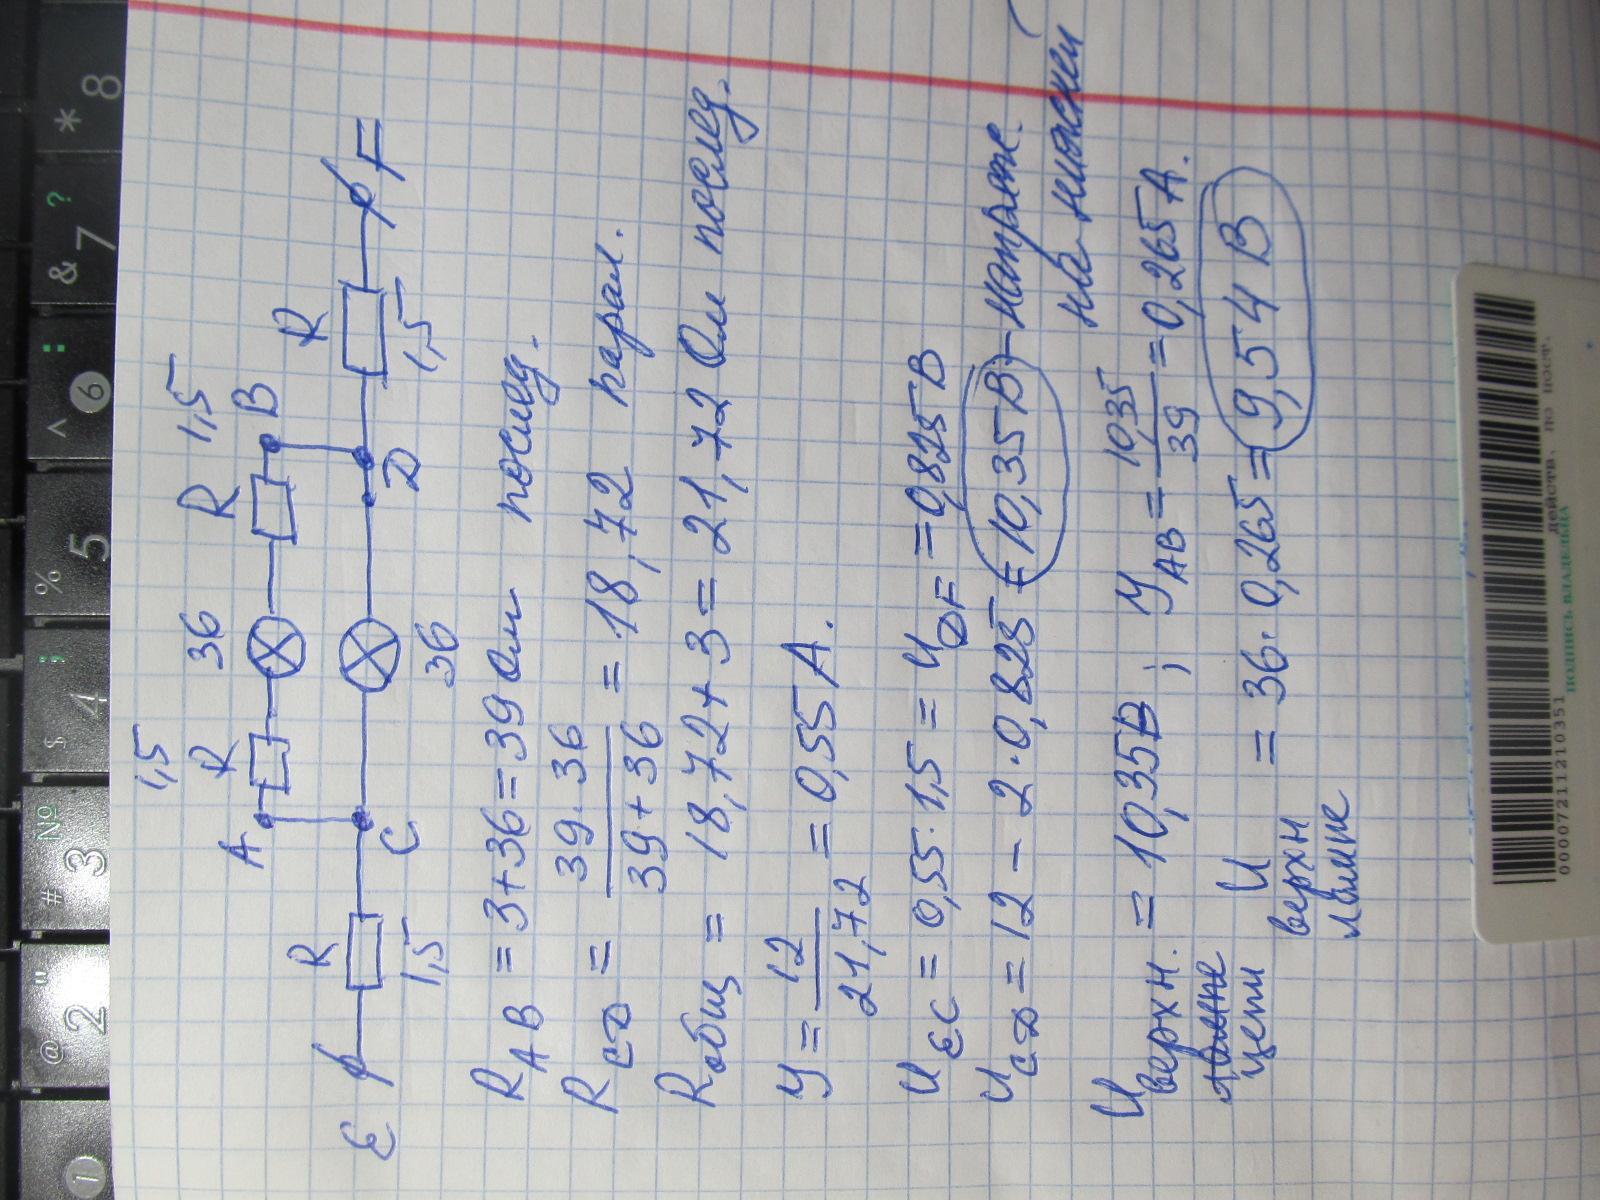 1,5 36 1,5
A R R B
E R C D R F
1,5 36 1,5
R AB = 3+36=39 Ом послед.
R CD = 39·36 / 39+36 = 18,72 парал.
R общ = 18,72+3=21,72 Ом послед.
У = 12 / 21,72 = 0,55 А.
U EC = 0,55·1,5 = U DF = 0,825 В
U CD = 12 - 2·0,825 = 10,35 В - напряж.
на нижней
U верхн. цепи = 10,35 В ; У AB = 10,35 / 39 = 0,265 А.
U верхн лампе = 36·0,265 = 9,54 В
@ 2 "
# 3 №
$ 4 ;
% 5
^ 6 :
& 7 ?
* 8
0000721121210351
ПОДПИСЬ ВЛАДЕЛЬЦА
ДЕЙСТВ. ПО ПОСТ.